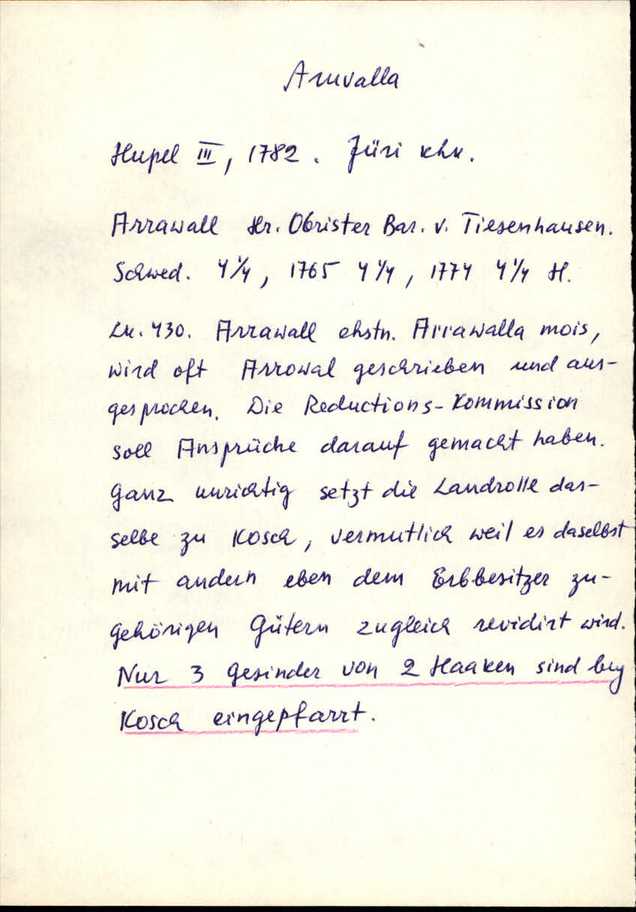 Aruvalla
Hupel III, 1782. Jüri khk.
Arrawall Hr. Obrister Bar. v. Tiesenhausen.
Schwed. 4 1/4, 1765 4 1/4, 1774 4 1/4 H.
Lk. 430. Arrawall ehstn. Arrawalla mois,
wird oft Arrowal geschrieben und aus-
gesprochen. Die Reductions-Kommission
soll Ansprüche darauf gemacht haben.
Ganz unrichtig setzt die Landrolle das-
selbe zu Kosch, vermutlich weil es daselbst
mit andern eben dem Erbbesitzer zu-
gehörigen Gütern zugleich revidirt wird.
Nur 3 Gesinder von 2 Haaken sind bey
Kosch eingepfarrt.